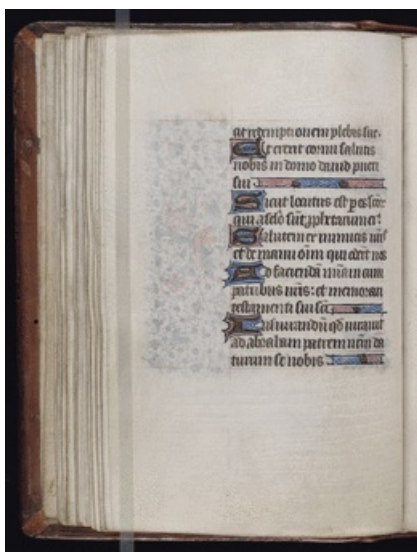 at redemptionem plebis sue.
Et erexit cornu salutis
nobis in domo dauid pueri
sui
Sicut locutus est p os scōr
qui a sclo sūt pphetarum ei9
Salutem ex inimicis nr̄is
et de manu oīm qui oderūt nos
Ad faciendā mīam cum
patribus nr̄is: et memorari
testamenti sui scī
Iusiurandū qd iurauit
ad abraham patrem nr̄m da
turum se nobis